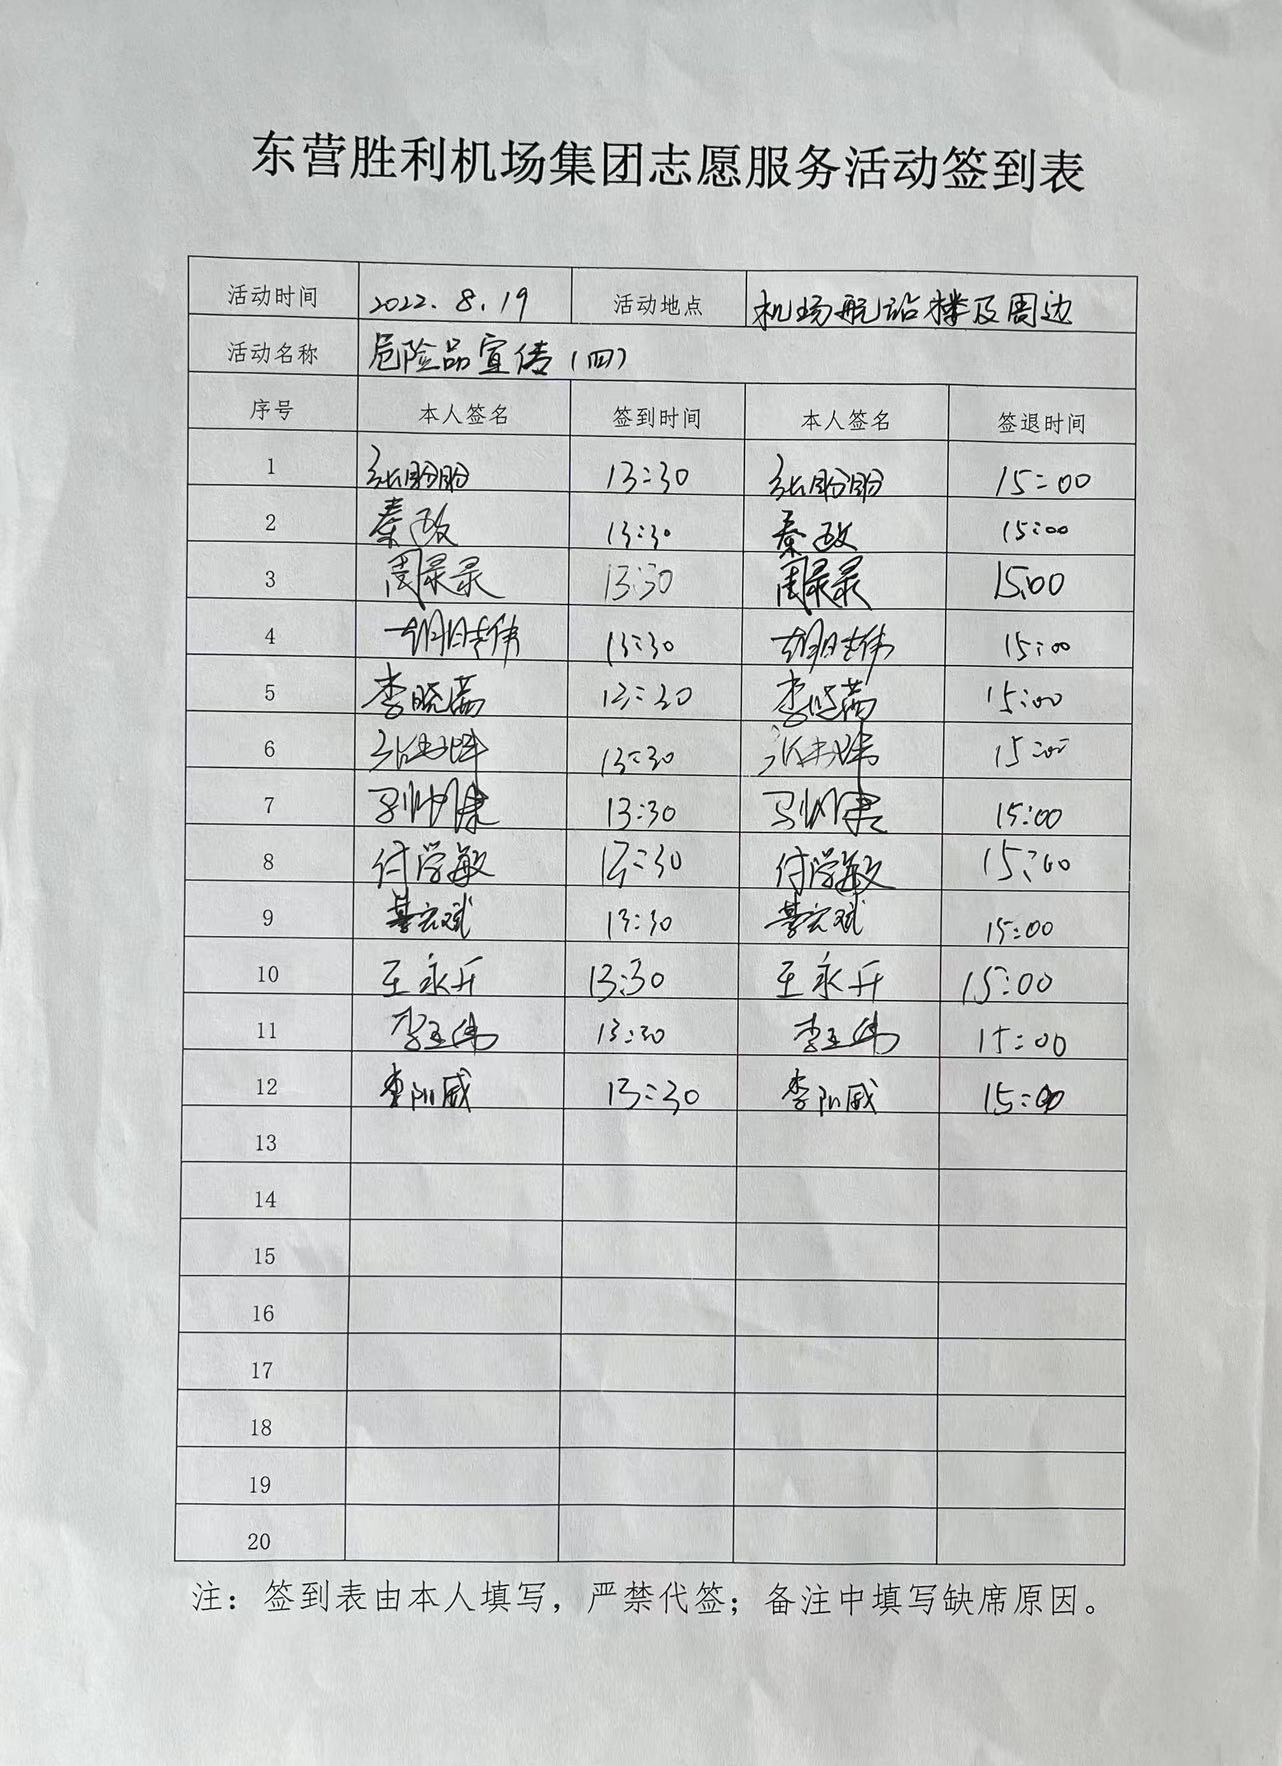 东营胜利机场集团志愿服务活动签到表
活动时间 2022.8.19 活动地点 机场航站楼及周边
活动名称 危险品宣传(四)
序号 本人签名 签到时间 本人签名 签退时间
1 张盼盼 13:30 张盼盼 15:00
2 秦政 13:30 秦政 15:00
3 周录录 13:30 周录录 15:00
4 胡志伟 13:30 胡志伟 15:00
5 李晓菡 13:30 李晓菡 15:00
6 13:30 15:00
7 13:30 15:00
8 付学敏 13:30 付学敏 15:00
9 綦宏斌 13:30 綦宏斌 15:00
10 王永升 13:30 王永升 15:00
11 李玉伟 13:30 李玉伟 15:00
12 13:30 15:00
13
14
15
16
17
18
19
20
注：签到表由本人填写，严禁代签；备注中填写缺席原因。